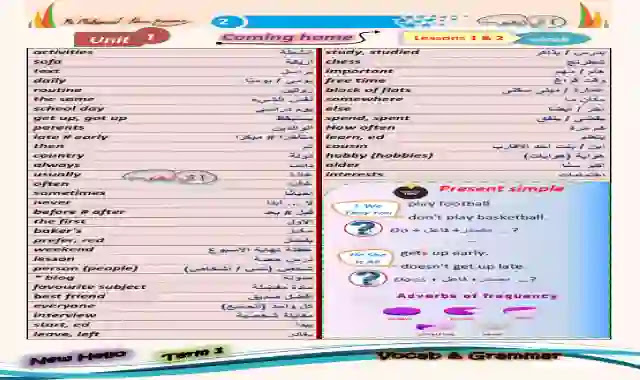 2
Unit 1
Coming home
Lessons 1 & 2
activities أنشطة
sofa أريكة
text
daily يومي / يوميًا
routine روتين
the same نفس الشيء
school day يوم دراسي
get up, got up يستيقظ
parents الوالدين
late # early متأخرًا # مبكرًا
then ثم
country دولة
always دائمًا
usually عادة
often غالبًا
sometimes أحيانًا
never لا ... أبدًا
before # after قبل # بعد
the first الأول
baker's مخبز
prefer, red يفضل
weekend عطلة نهاية الأسبوع
lesson درس حصة
person (people) شخص (ناس / أشخاص)
* blog مدونة
favourite subject مادة مفضلة
best friend أفضل صديق
everyone كل واحد (الجميع)
interview مقابلة شخصية
start, ed يبدأ
leave, left يغادر
study, studied يدرس / يذاكر
chess شطرنج
important هام / مهم
free time وقت فراغ
block of flats عمارة / مبنى سكني
somewhere مكان ما
else آخر / أيضا
spend, spent يقضي / ينفق
How often كم مرة
learn, ed يتعلم
cousin ابن / بنت أحد الأقارب
hobby (hobbies) هواية (هوايات)
older أكبر سنًا
interests اهتمامات
Present simple
I We They You
play football
don't play basketball.
Do + فاعل + مصدر ... ?
He She It
gets up early.
doesn't get up late.
Does + فاعل + مصدر ... ?
Adverbs of frequency
New Hello
Term 1
Vocab & Grammar